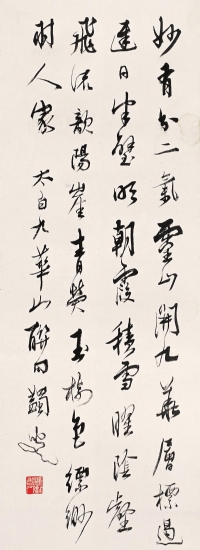 妙有分二氣靈山開九華層標遏
遲日半壁明朝霞積雪曜陰壑
飛流歕陽崖青熒玉樹色縹緲
羽人家 太白九華山聯句